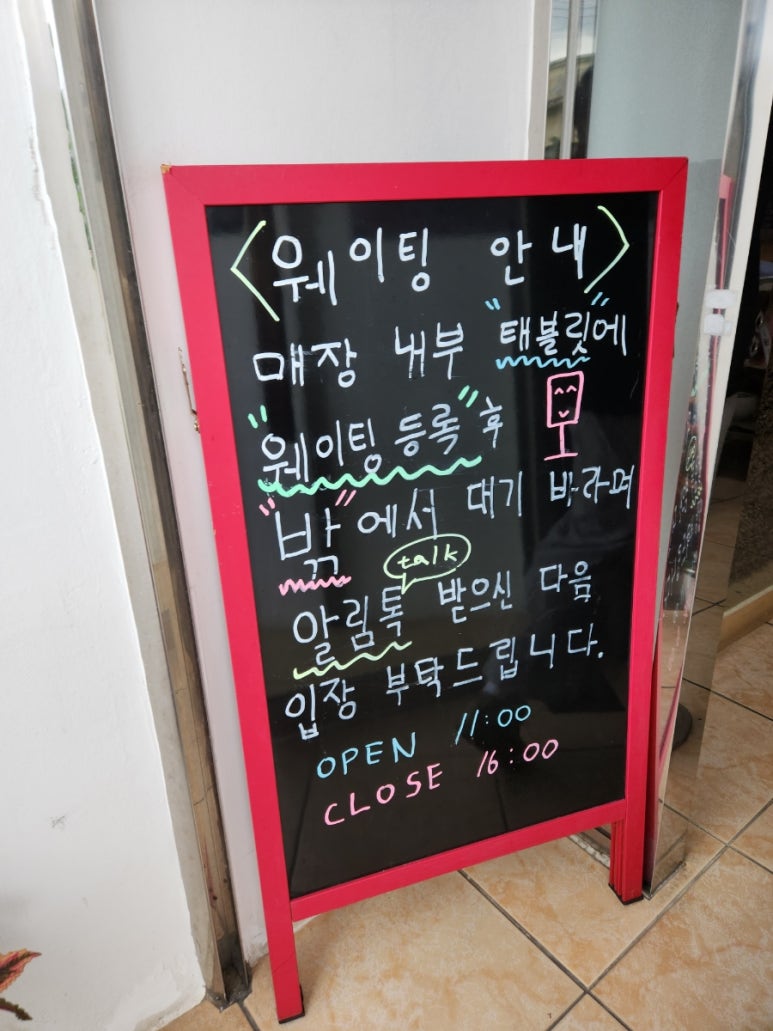 <웨이팅 안내>
매장 내부 "태블릿"에
"웨이팅 등록" 후
"밖"에서 대기 바라며
talk
알림톡 받으신 다음
입장 부탁드립니다.
OPEN 11:00
CLOSE 16:00